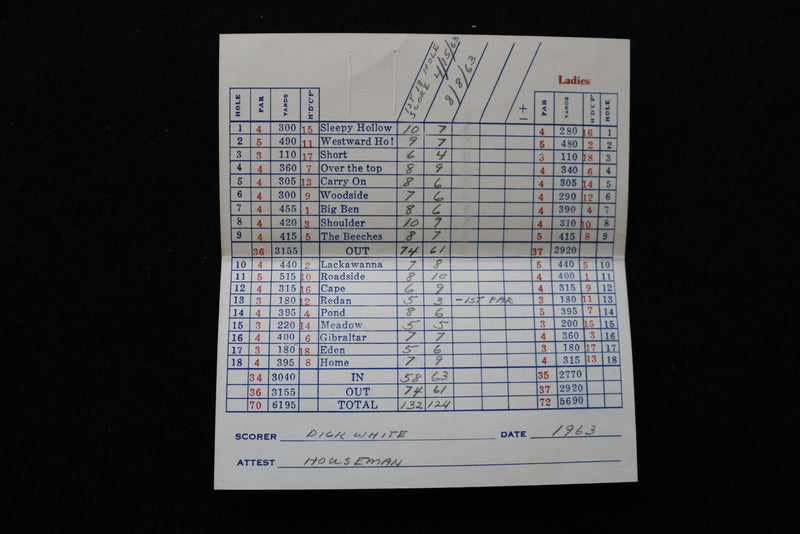 1ST 18 HOLE SCORE 4/15/63 8/8/63 1+
Ladies
HOLE PAR YARDS H'D'C'P' PAR YARDS H'D'C'P' HOLE
1 4 300 15 Sleepy Hollow 10 7 4 280 16 1
2 5 490 11 Westward Ho! 9 7 5 480 2 2
3 3 110 17 Short 6 4 3 110 18 3
4 4 360 7 Over the top 8 9 4 340 6 4
5 4 305 13 Carry On 8 6 4 305 14 5
6 4 300 9 Woodside 7 6 4 290 12 6
7 4 455 1 Big Ben 8 6 4 390 4 7
8 4 420 3 Shoulder 10 9 4 310 10 8
9 4 415 5 The Beeches 8 7 5 415 8 9
36 3155 OUT 74 61 37 2920
10 4 440 2 Lackawanna 7 8 5 440 5 10
11 5 515 10 Roadside 8 10 4 400 1 11
12 4 315 16 Cape 6 9 4 315 9 12
13 3 180 12 Redan 5 3 -1ST PAR 3 180 11 13
14 4 395 4 Pond 8 6 5 395 7 14
15 3 220 14 Meadow 5 5 3 200 15 15
16 4 400 6 Gibraltar 7 7 4 360 3 16
17 3 180 18 Eden 5 6 3 180 17 17
18 4 395 8 Home 7 9 4 315 13 18
34 3040 IN 58 63 35 2770
36 3155 OUT 74 61 37 2920
70 6195 TOTAL 132 124 72 5690
SCORER DICK WHITE DATE 1963
ATTEST HOUSEMAN